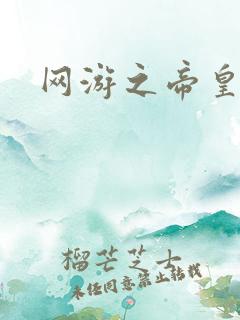 网游之帝皇
榴芒芝士
未经同意禁止转载